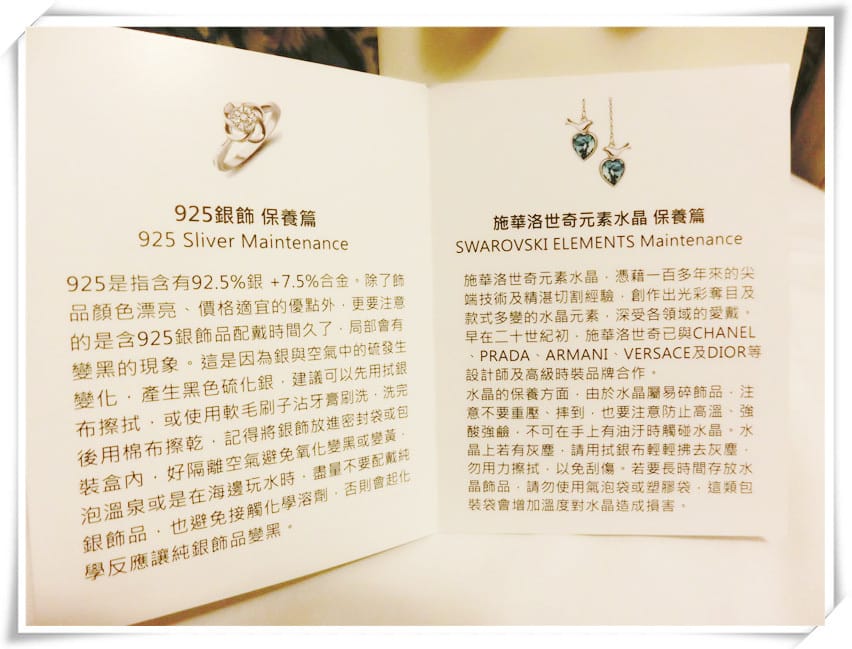 925銀飾 保養篇
925 Sliver Maintenance
925是指含有92.5%銀 +7.5%合金。除了飾
品顏色漂亮、價格適宜的優點外，更要注意
的是含925銀飾品配戴時間久了，局部會有
變黑的現象。這是因為銀與空氣中的硫發生
變化，產生黑色硫化銀，建議可以先用拭銀
布擦拭，或使用軟毛刷子沾牙膏刷洗，洗完
後用棉布擦乾，記得將銀飾放進密封袋或包
裝盒內，好隔離空氣避免氧化變黑或變黃，
泡溫泉或是在海邊玩水時，盡量不要配戴純
銀飾品，也避免接觸化學溶劑，否則會起化
學反應讓純銀飾品變黑。
施華洛世奇元素水晶 保養篇
SWAROVSKI ELEMENTS Maintenance
施華洛世奇元素水晶，憑藉一百多年來的尖
端技術及精湛切割經驗，創作出光彩奪目及
款式多變的水晶元素，深受各領域的愛戴。
早在二十世紀初，施華洛世奇已與CHANEL
、PRADA、ARMANI、VERSACE及DIOR等
設計師及高級時裝品牌合作。
水晶的保養方面，由於水晶屬易碎飾品，注
意不要重壓、摔到，也要注意防止高溫、強
酸強鹼，不可在手上有油汙時觸碰水晶。水
晶上若有灰塵，請用拭銀布輕輕拂去灰塵，
勿用力擦拭，以免刮傷。若要長時間存放水
晶飾品，請勿使用氣泡袋或塑膠袋，這類包
裝袋會增加溫度對水晶造成損害。